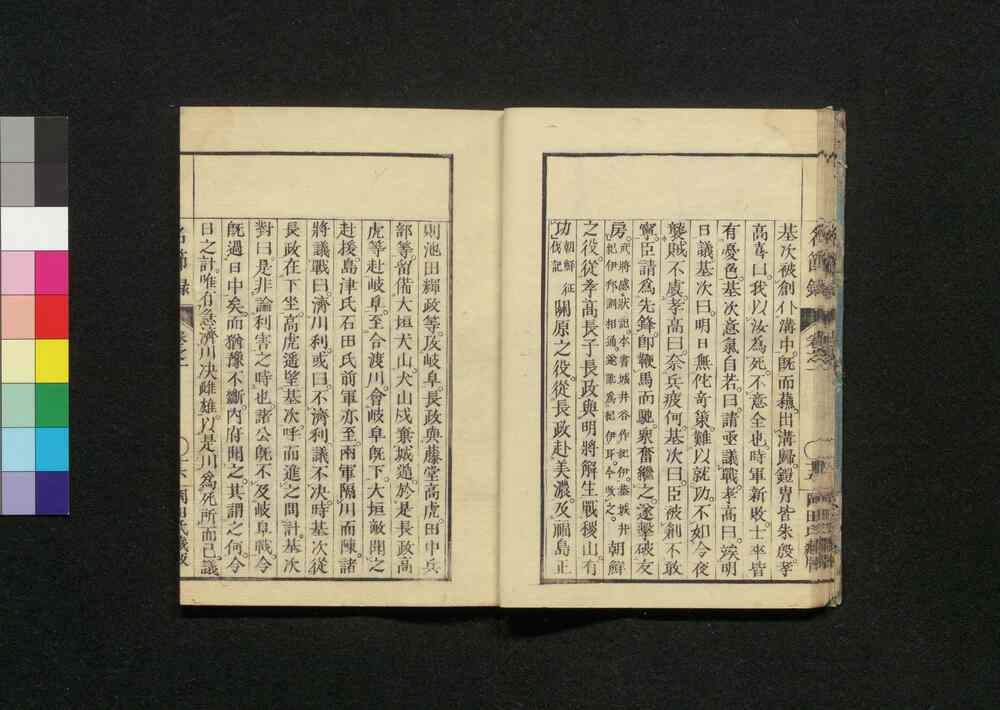 基次被創仆溝中。既而蘓。出溝歸。鎧冑皆朱殷。孝
高喜曰。我以汝為死。不意全也。時軍新敗。士卒皆
有憂色。基次意氣自若。曰。請亟議戰。孝高曰。俟明
日議。基次曰。明日無佗奇策。難以就功。不如今夜
襲賊不虞。孝高曰。奈兵疲何。基次曰。臣被創不敢
寧。臣請為先鋒。卽鞭馬而馳。衆奮繼之。遂擊破友
房。朝鮮
之役。從孝高長子長政與明將解生戰稷山。有
功。朝鮮征伐記關原之役。從長政赴美濃。及福島正
則池田輝政等。攻岐阜。長政與藤堂高虎田中兵
部等。留備大垣犬山。犬山戍棄城遁。於是長政高
虎等赴岐阜。至合渡川。會岐阜既下。大垣敵聞之
赴援。島津氏石田氏前軍亦至。兩軍隔川而陳。諸
將議戰。曰濟川利。或曰。不濟利。議不決。時基次從
長政在下坐。高虎遥望基次。呼而進之問計。基次
對曰。是非論利害之時也。諸公既不及岐阜戰。今
既過日中矣。而猶豫不斷。內府聞之。其謂之何。今
日之計。唯有急濟川決雌雄。以是川為死所而已。議
名節録
卷之一
岡田氏藏版